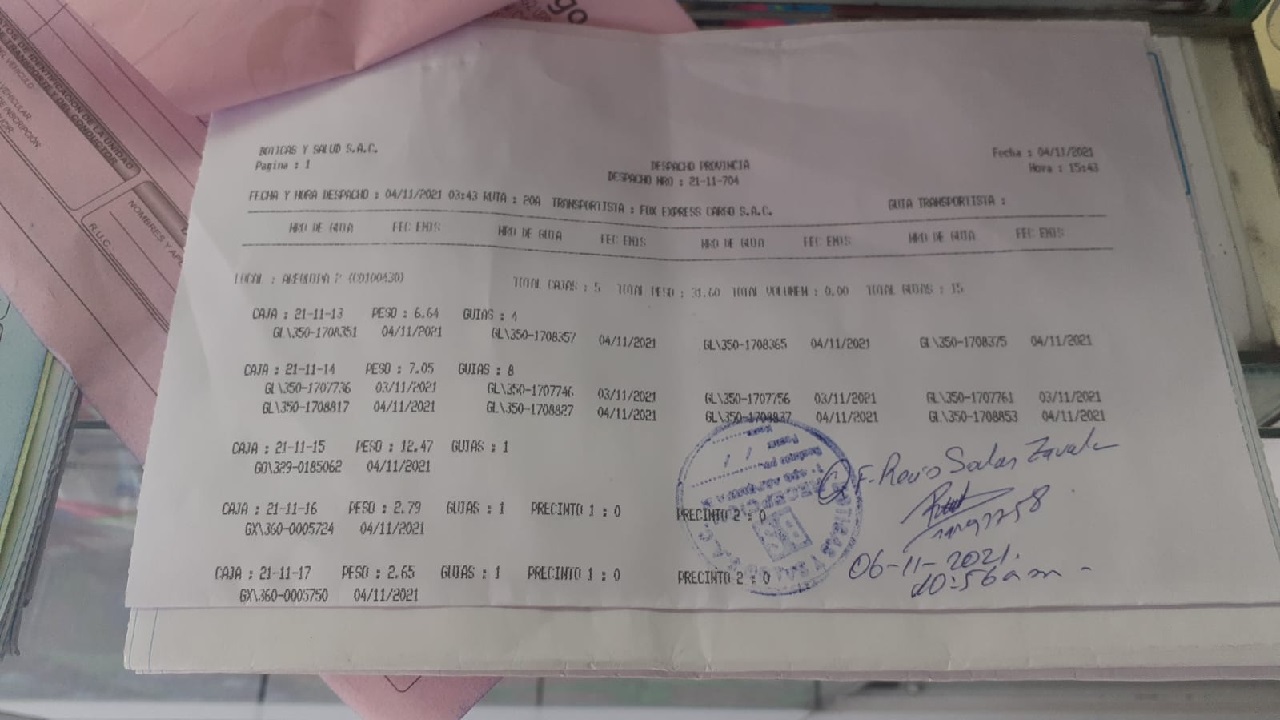 go
BOTICAS Y SALUD S.A.C.
Pagina : 1
DESPACHO PROVINCIA
DESPACHO NRO : 21-11-704
Fecha : 04/11/2021
Hora : 15:43
FECHA Y HORA DESPACHO : 04/11/2021 03:43 RUTA : 20A TRANSPORTISTA : FOX EXPRESS CARGO S.A.C. GUIA TRANSPORTISTA :
NRO DE GUIA FEC EMIS NRO DE GUIA FEC EMIS NRO DE GUIA FEC EMIS NRO DE GUIA FEC EMIS
LOCAL : AREQUIPA 2 (CD100430) TOTAL CAJAS : 5 TOTAL PESO : 31.60 TOTAL VOLUMEN : 0.00 TOTAL GUIAS : 15
CAJA : 21-11-13 PESO : 6.64 GUIAS : 4
GL\350-1708351 04/11/2021 GL\350-1708357 04/11/2021 GL\350-1708365 04/11/2021 GL\350-1708375 04/11/2021
CAJA : 21-11-14 PESO : 7.05 GUIAS : 8
GL\350-1707736 03/11/2021 GL\350-1707746 03/11/2021 GL\350-1707756 03/11/2021 GL\350-1707761 03/11/2021
GL\350-1708817 04/11/2021 GL\350-1708827 04/11/2021 GL\350-1708837 04/11/2021 GL\350-1708853 04/11/2021
CAJA : 21-11-15 PESO : 12.47 GUIAS : 1
GO\329-0185062 04/11/2021
CAJA : 21-11-16 PESO : 2.79 GUIAS : 1 PRECINTO 1 : 0 PRECINTO 2 : 0
GX\360-0005724 04/11/2021
CAJA : 21-11-17 PESO : 2.65 GUIAS : 1 PRECINTO 1 : 0 PRECINTO 2 : 0
GX\360-0005750 04/11/2021
Salas Zavala
06-11-2021.
10:56am
BS
R.U.C.